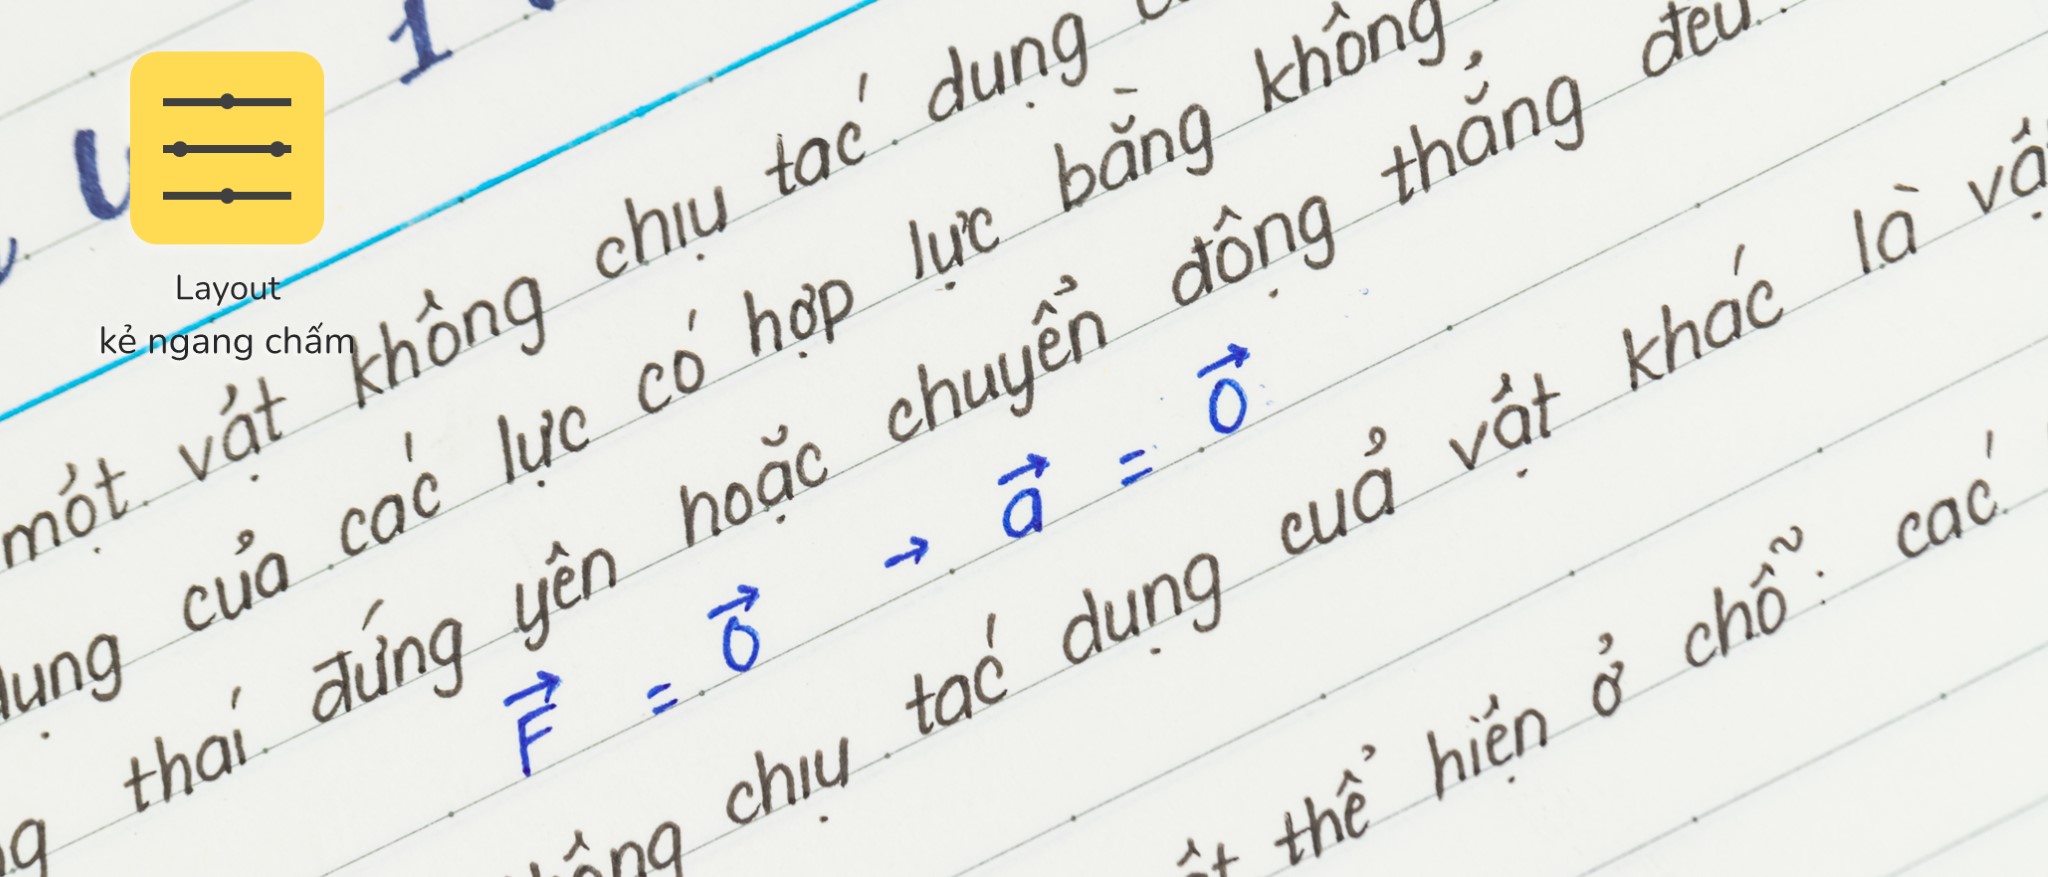 1
Layout
kẻ ngang chấm
một vật không chịu tác dụng
của các lực có hợp lực bằng không,
thái đứng yên hoặc chuyển động thẳng đều.
F⃗ = 0⃗ → a⃗ = 0⃗
chịu tác dụng của vật khác là vật
thể hiện ở chỗ: các